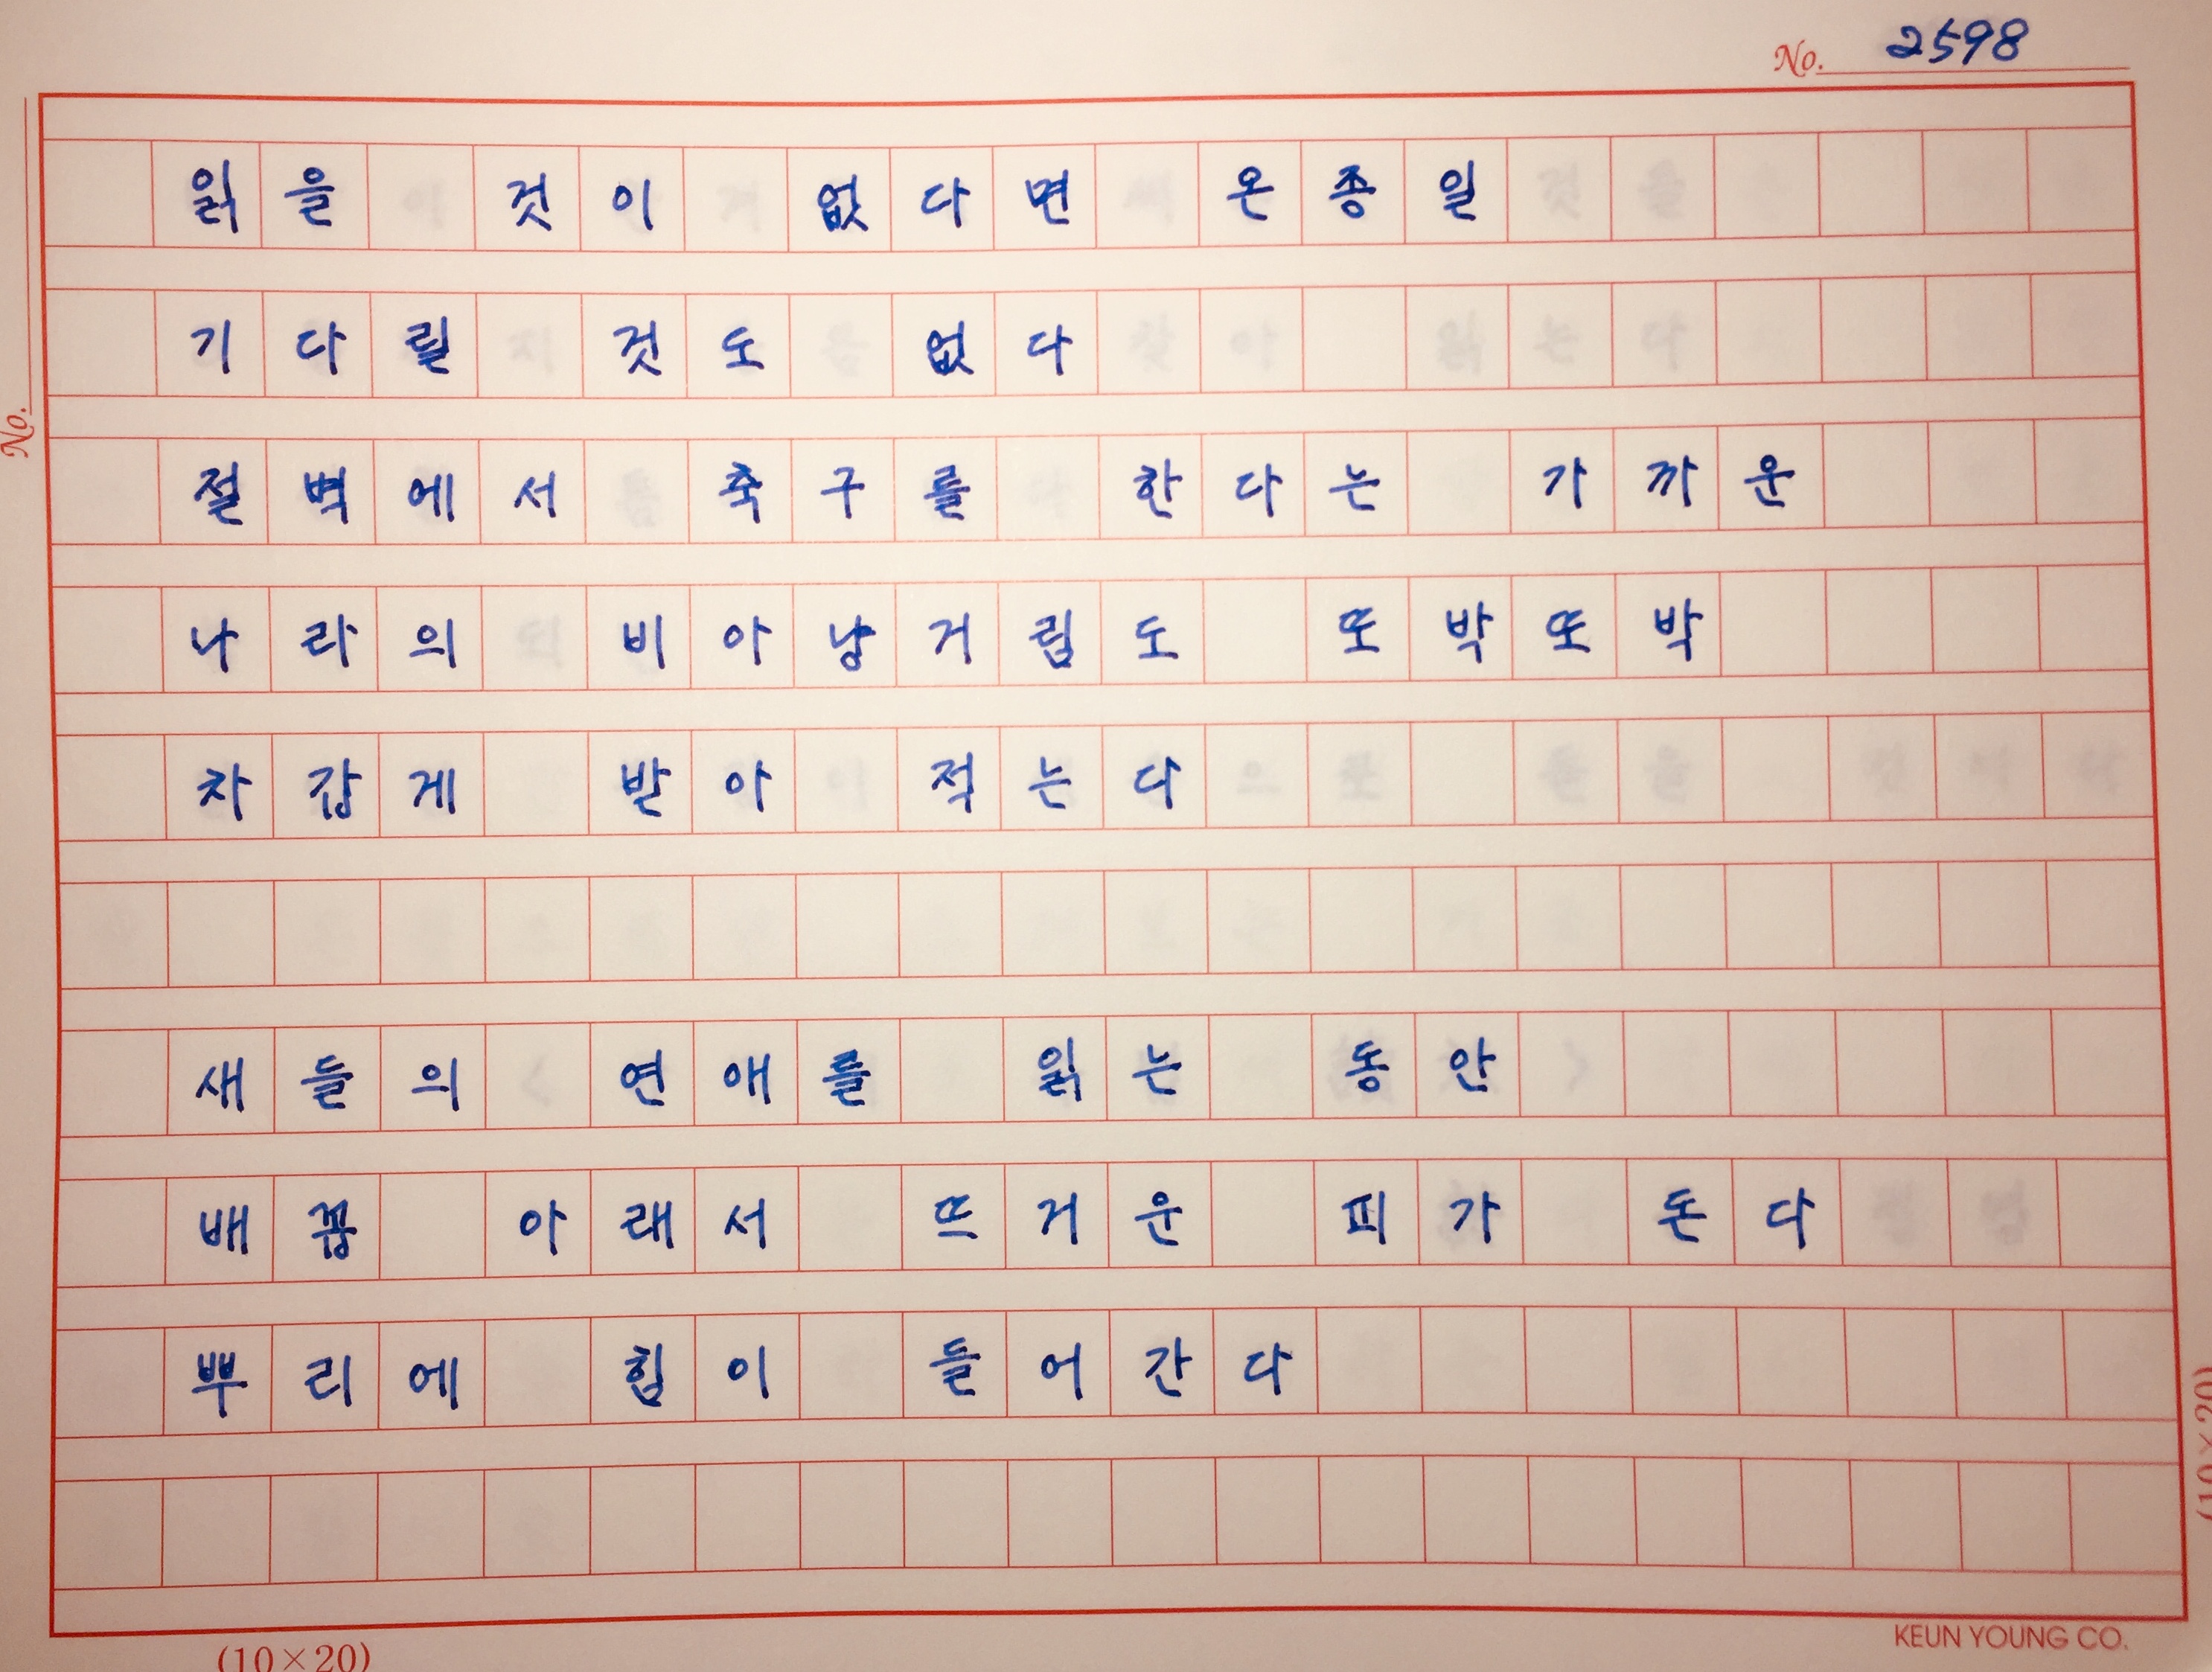 No. 2598
읽을 것이 없다면 온종일
기다릴 것도 없다
절벽에서 축구를 한다는 가까운
나라의 비아냥거림도 또박또박
차갑게 받아 적는다
새들의 연애를 읽는 동안
배꼽 아래서 뜨거운 피가 돈다
뿌리에 힘이 들어간다
No.
(10×20)
(10×20)
KEUN YOUNG CO.